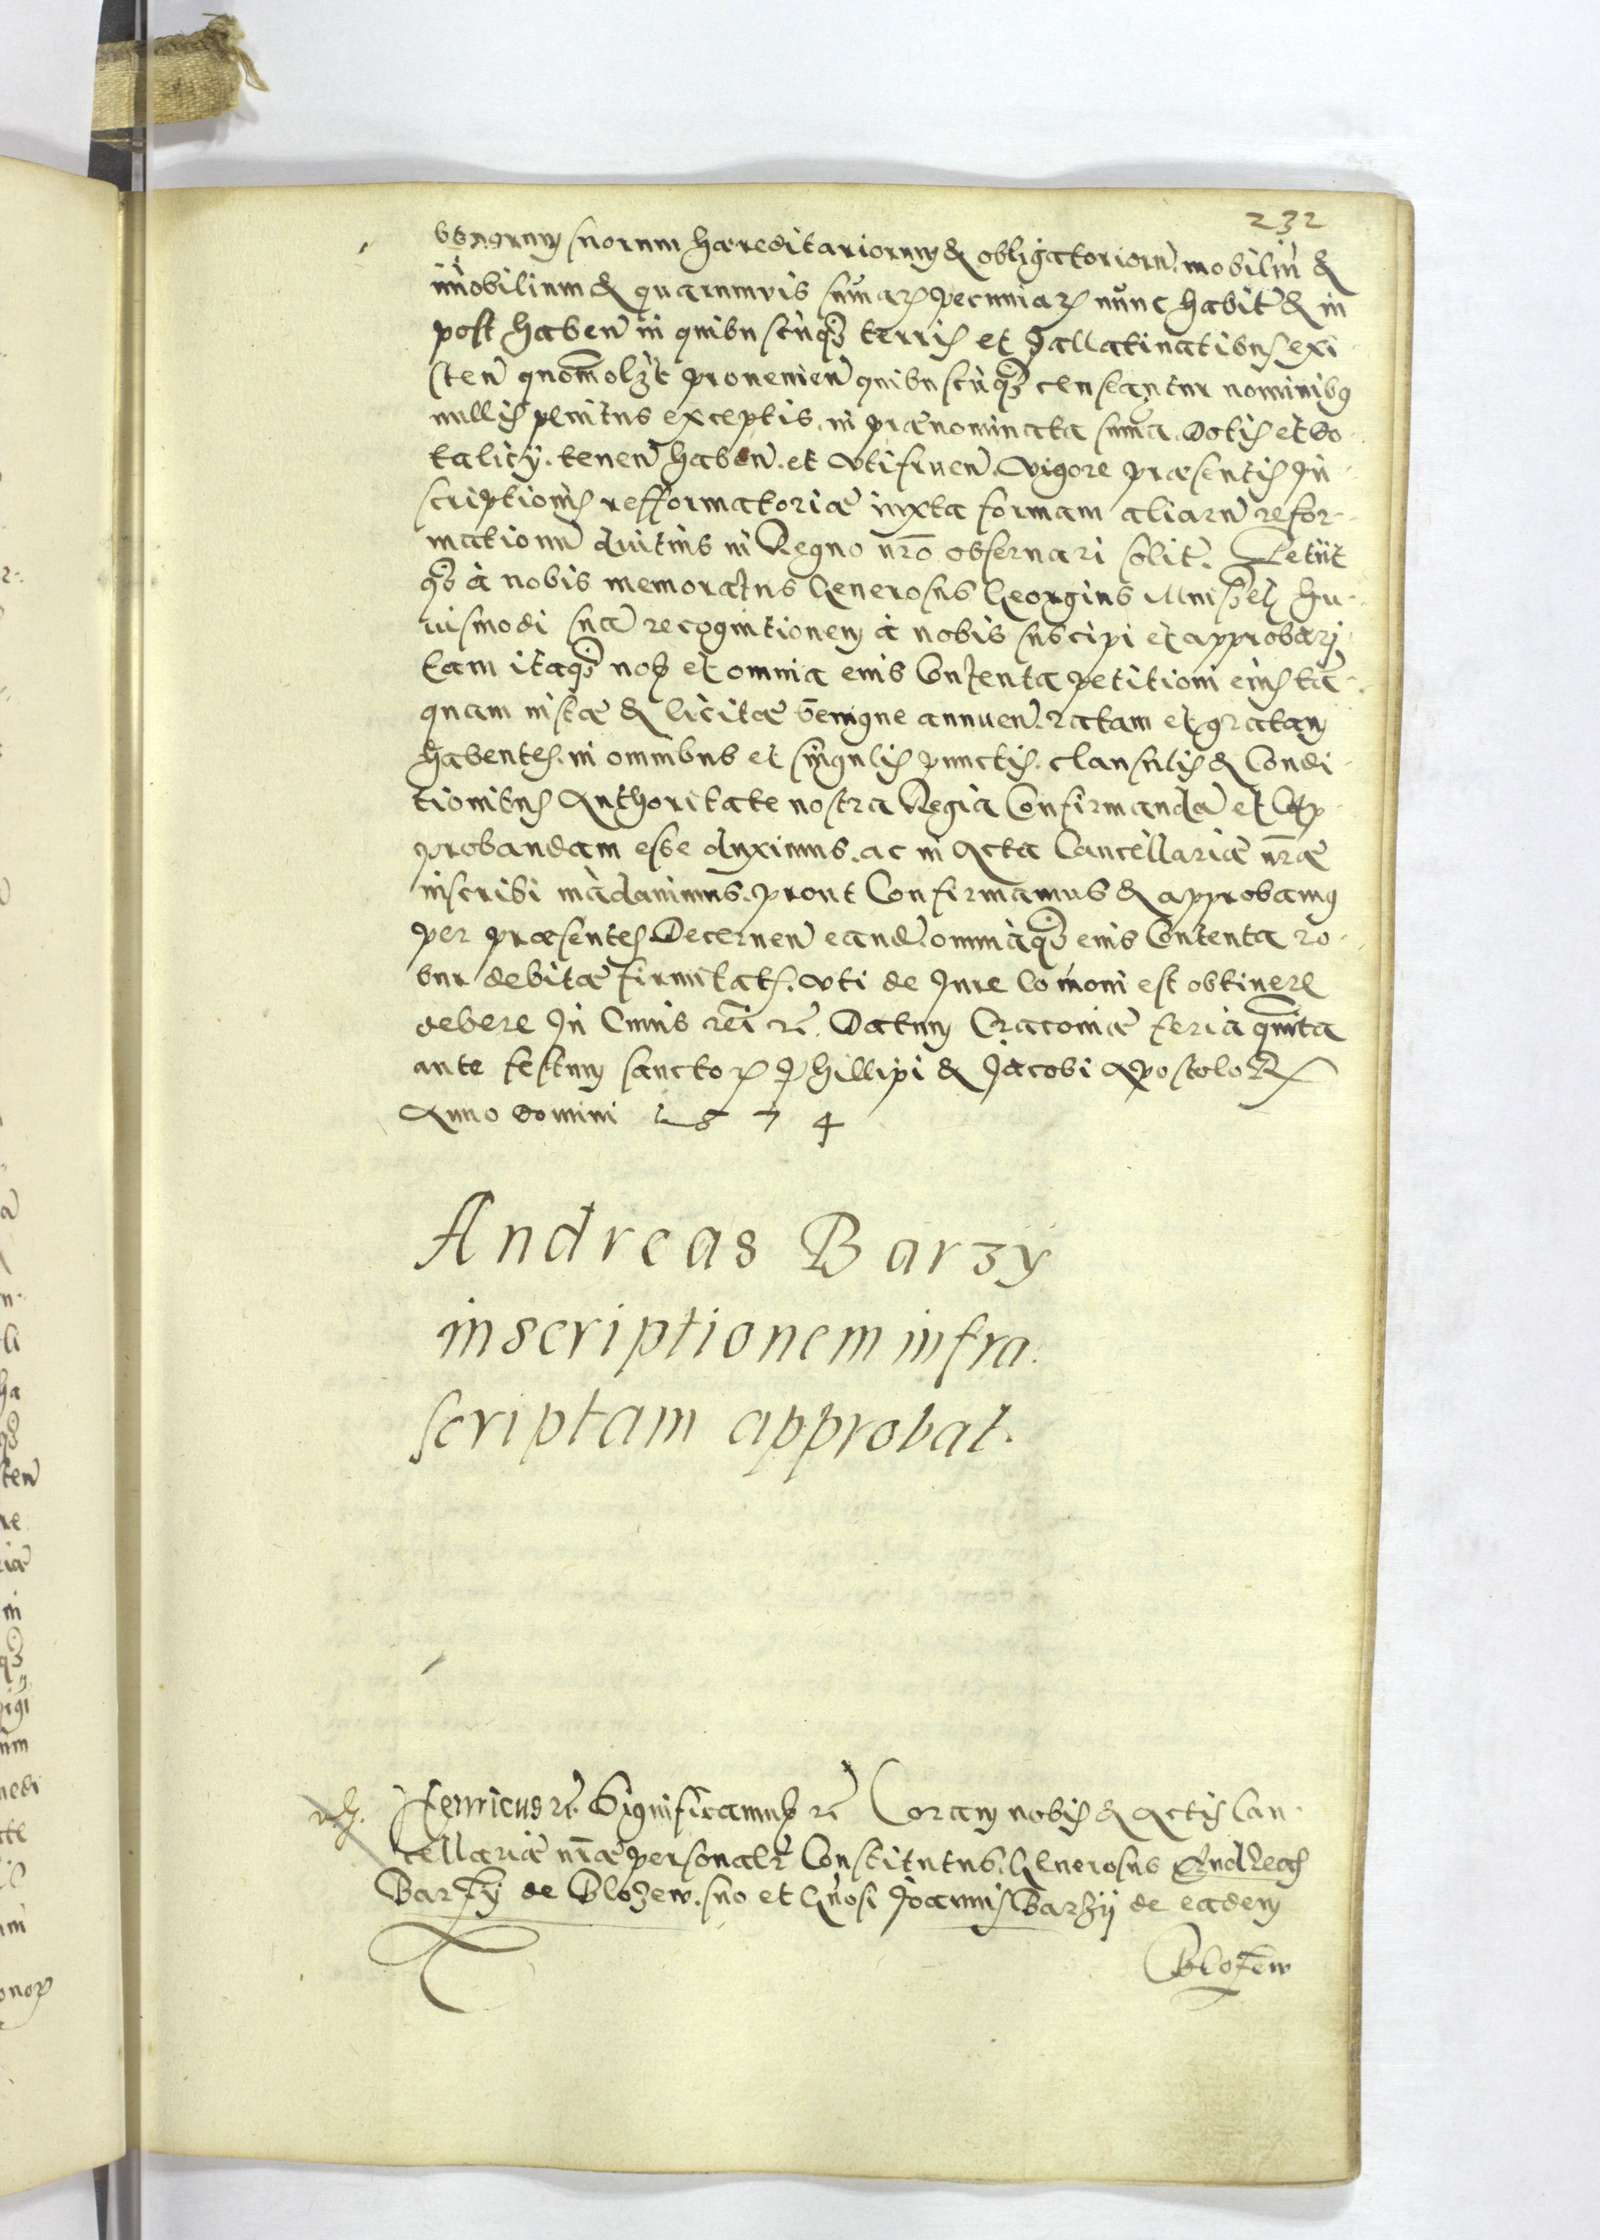 232
bonorum suorum haereditariorum & obligatorioru. mobiliu &
imobilium & quarumvis sumar pecuniar nunc habit & in
post haben in quibuscuq terris et Pallatinatibus exi-
sten quomolzt provenien quibuscuq censeantur nominibus
nullis penitus exceptis. in praenominata suma. Dotis et do-
talicy. tenen haben. et utifruen. vigore praesentis In-
scriptionis refformatoriae iuxta formam aliaru refor-
mationu divitius in Regno nro observari solit. Petiit
q à nobis memoratus Generosus Georgius Mniszek hu-
iusmodi sua recognitionem à nobis suscipi et approbari
tam itaq nos et omnia eius Contenta petitioni eius ta-
quam iustae & licitae benigne annuen. ratam et gratam
habentes. in omnibus et singulis punctis. clausulis & Condi-
tionibus Authoritate nostra Regia Confirmanda et Ap-
probandam esse duximus. ac in Acta Cancellariae nrae
inscribi madavimus. prout Confirmamus & approbamus
per praesentes Decernen eande. omniaq eius Contenta ro-
bur debitae firmitatis. uti de Jure Comoni est obtinere
debere In Cuius rei rc. Datum Cracoviae feria quinta
ante festum sanctor Phillipi & Jacobi Apostolor
Anno Domini 1574
Andreas Barzy
inscriptionem infra.
scriptam approbat.
Henricus rc. Significamus rc Coram nobis & Actis Can-
cellariae nrae personalr Constitutus. Generosus Andreas
Barzy de Blozew. suo et Gnosi Joannis Barzij de eadem
Blozew